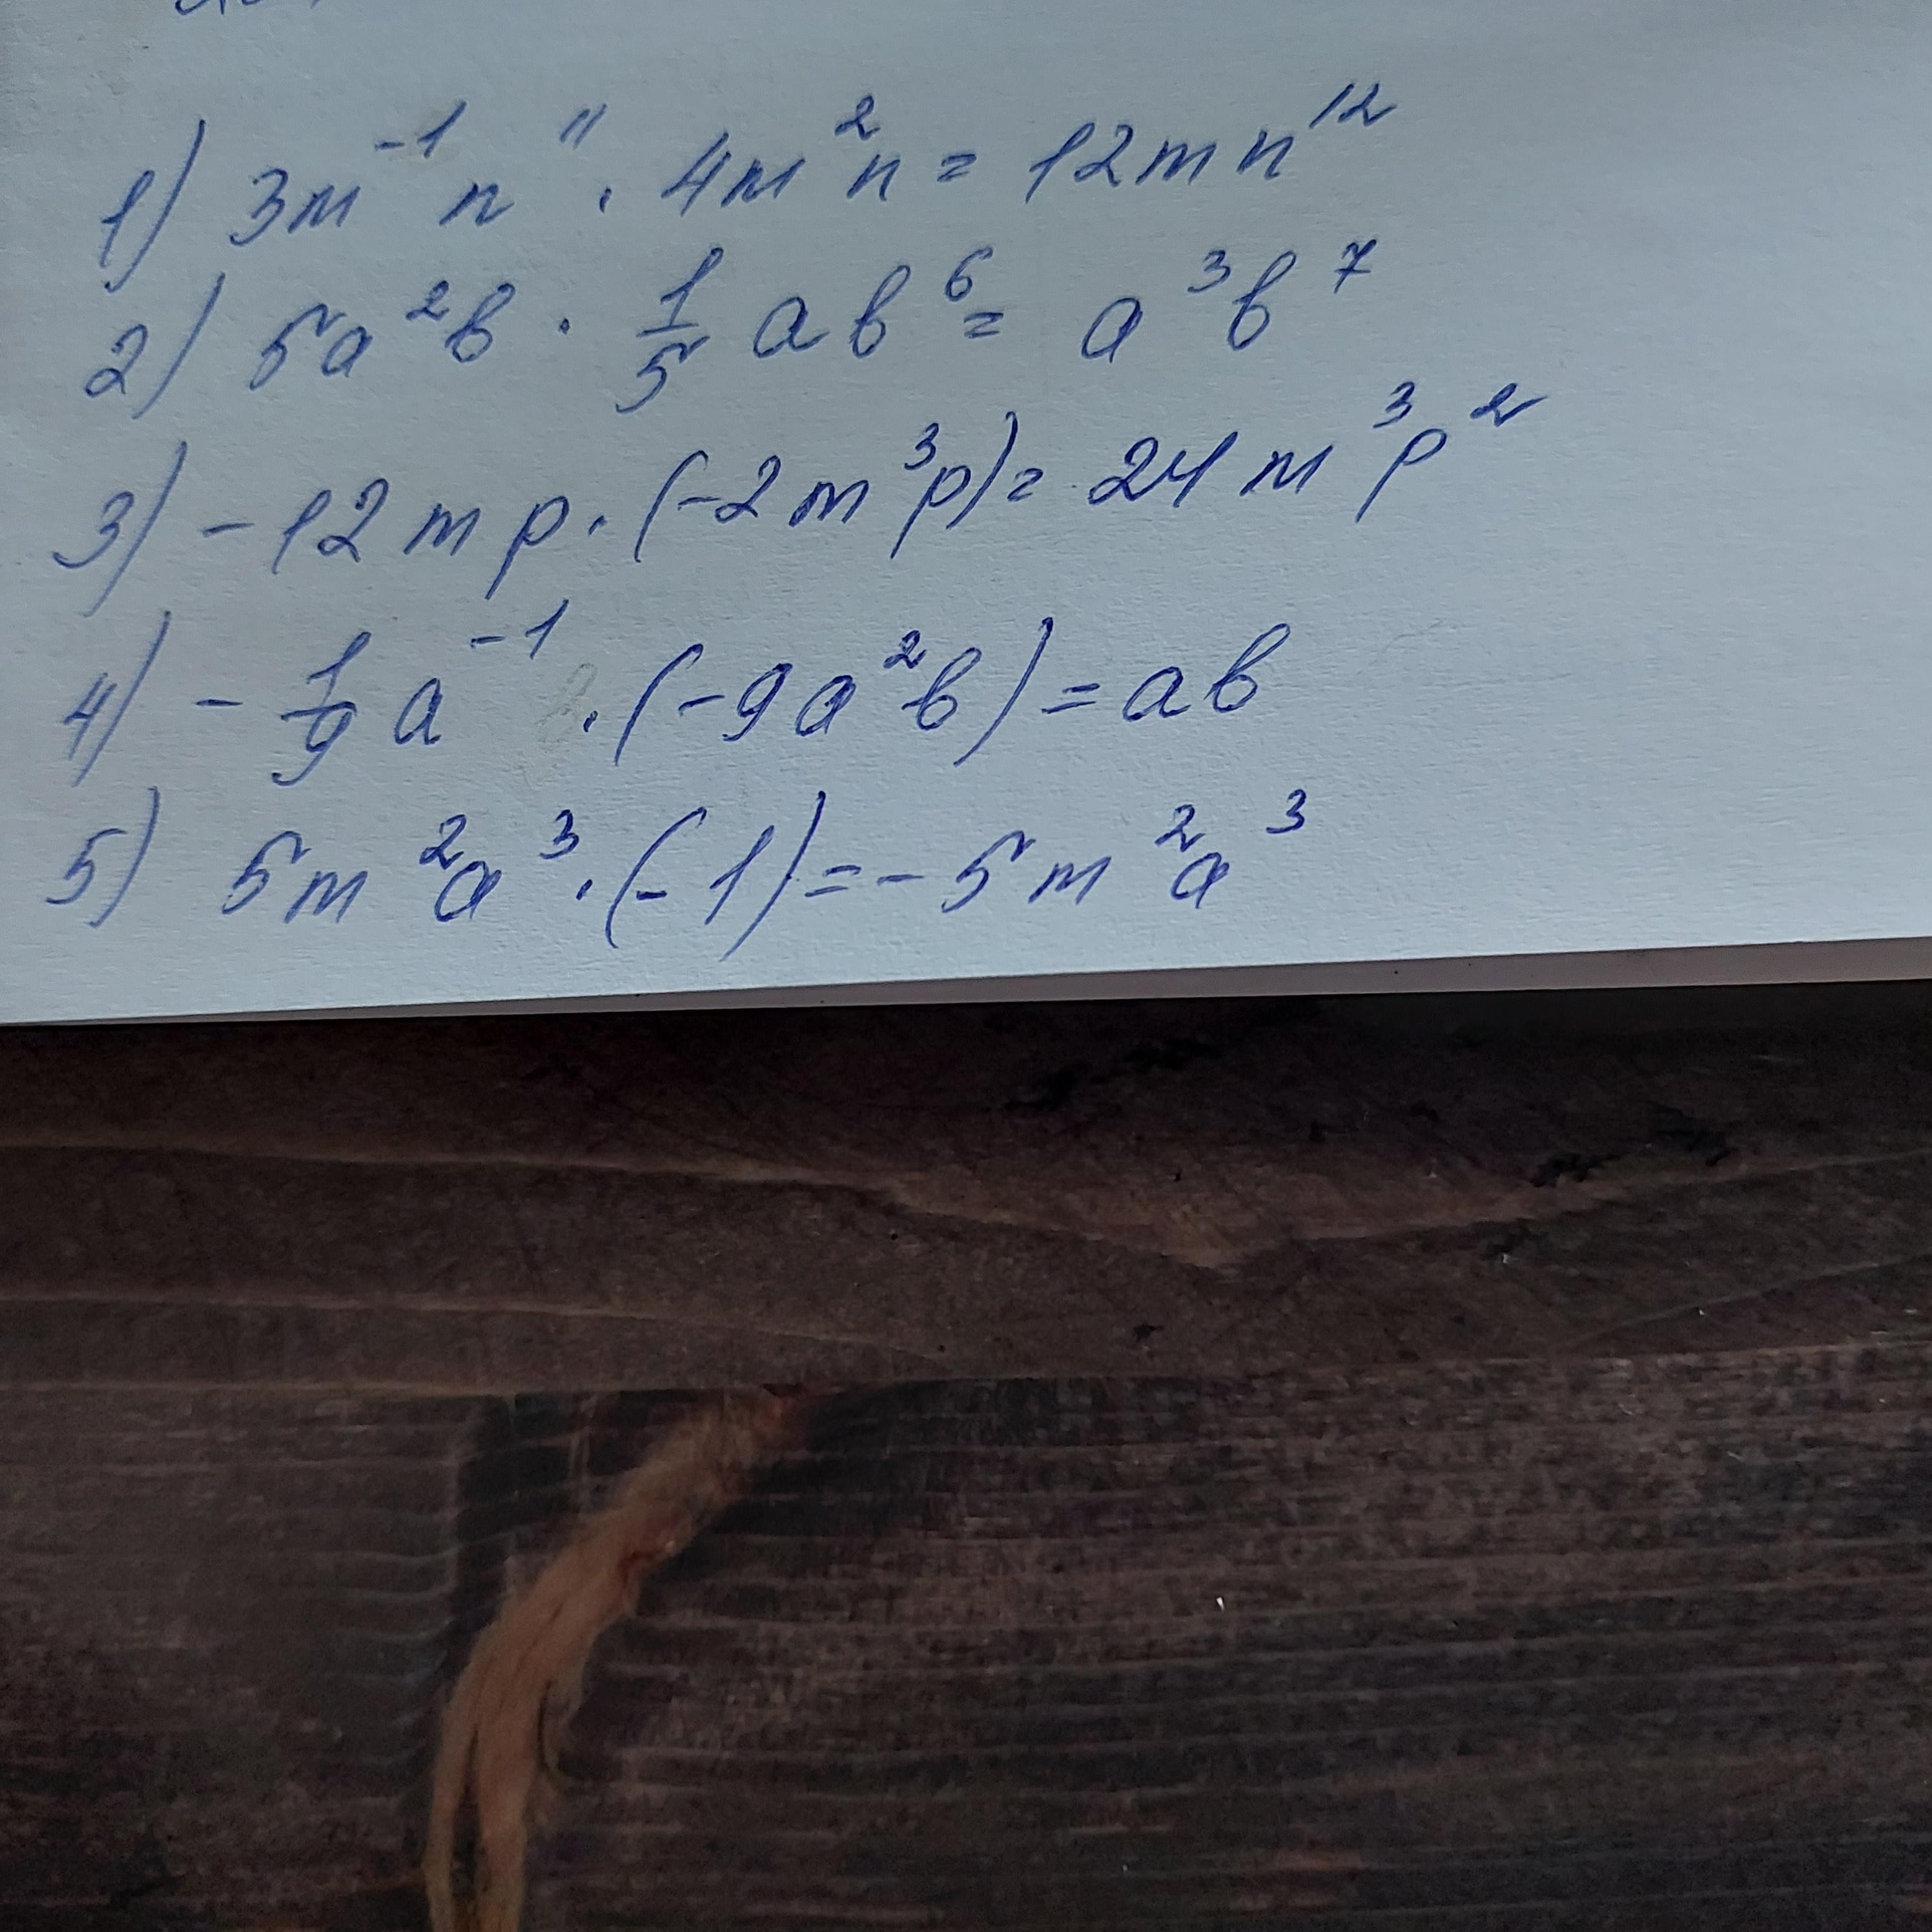 1) 3m⁻¹n¹¹ · 4m²n = 12mn¹²
2) 5a²b · 1/5 ab⁶ = a³b⁷
3) -12mp · (-2m³p) = 24m³p²
4) -1/9 a⁻¹ · (-9a²b) = ab
5) 5m²a³ · (-1) = -5m²a³